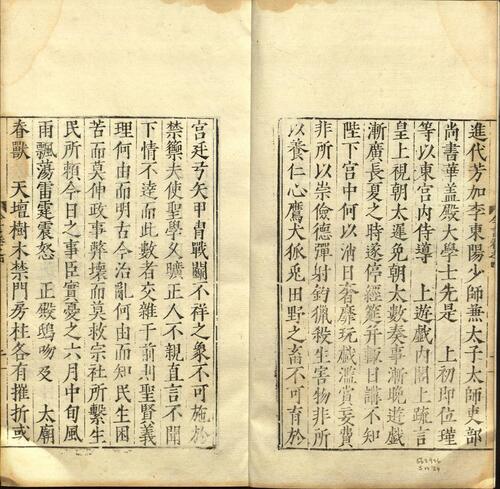 進代芳加李東陽少師兼太子太師吏部
尚書華盖殿大學士先是　上初即位瑾
等以東宮內侍導　上遊戲內閣上疏言
皇上視朝太遲免朝太數奏事漸晚遊戲
漸廣長夏之時遂停經筵并輟日講不知
陛下宮中何以消日奢靡玩戲濫賞妄費
非所以崇儉德彈射釣獵殺生害物非所
以養仁心鷹犬狐兎田野之畜不可育於
宮廷弓矢甲冑戰鬬不祥之象不可施於
禁籞夫使聖學久曠正人不親直言不聞
下情不達而此數者交雜于前則聖賢義
理何由而明古今治亂何由而知民生困
苦而莫伸政事弊壞而莫救宗社所繫生
民所頼今日之事臣實憂之六月中旬風
雨飄蕩雷霆震怒　正殿鴟吻及　太廟
春獸　天壇樹木禁門房柱各有摧折或